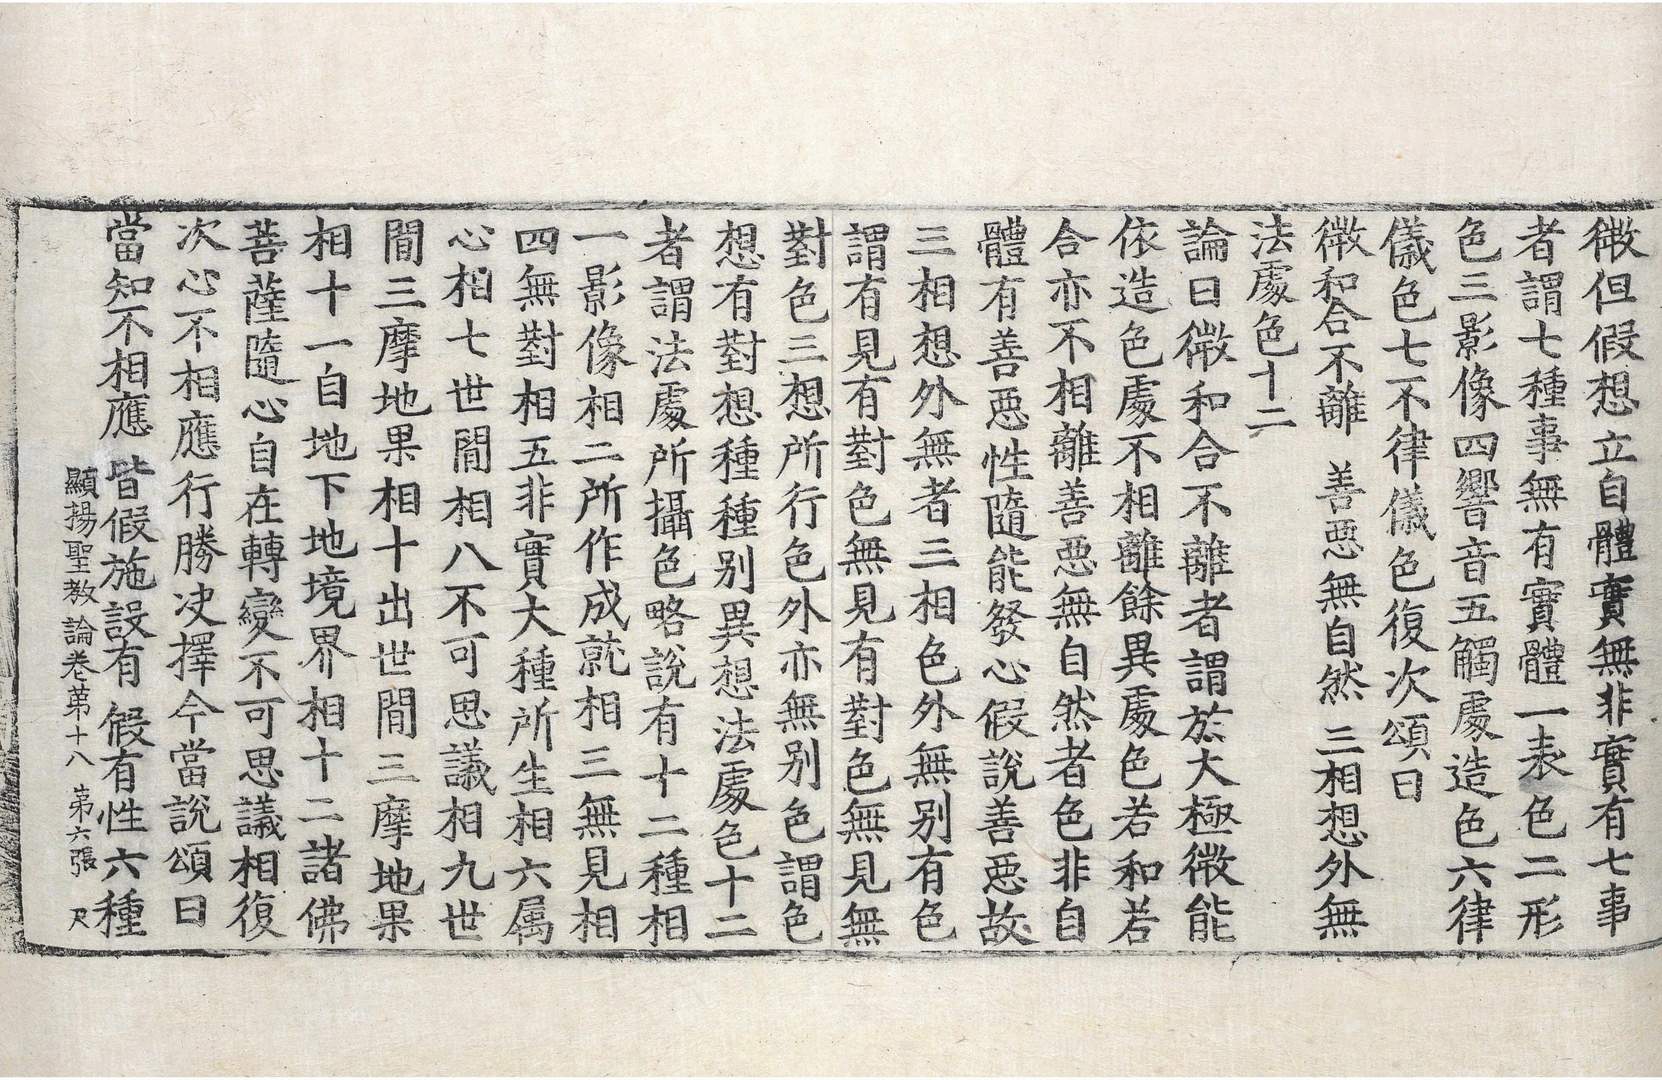 微但假想立自體實無非實有七事
者謂七種事無有實體一表色二形
色三影像四響音五觸處造色六律
儀色七不律儀色復次頌曰
微和合不離　善惡無自然　三相想外無
法處色十二
論曰微和合不離者謂於大極微能
依造色處不相離餘異處色若和若
合亦不相離善惡無自然者色非自
體有善惡性隨能發心假說善惡故
三相想外無者三相色外無別有色
謂有見有對色無見有對色無見無
對色三想所行色外亦無別色謂色
想有對想種種別異想法處色十二
者謂法處所攝色略說有十二種相
一影像相二所作成就相三無見相
四無對相五非實大種所生相六属
心相七世間相八不可思議相九世
間三摩地果相十出世間三摩地果
相十一自地下地境界相十二諸佛
菩薩隨心自在轉變不可思議相復
次心不相應行勝决擇今當說頌曰
當知不相應　皆假施設有　假有性六種
顯揚聖教論卷苐十八　苐六張　尺